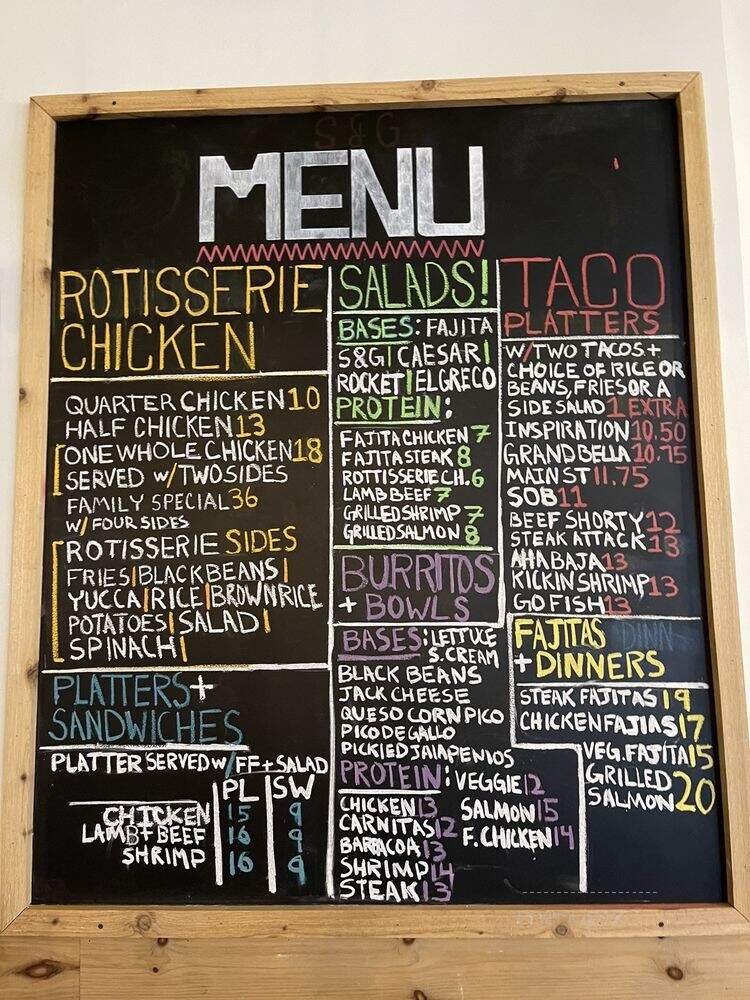 S&G
MENU
ROTISSERIE
CHICKEN
QUARTER CHICKEN 10
HALF CHICKEN 13
ONE WHOLE CHICKEN 18
SERVED w/ TWO SIDES
FAMILY SPECIAL 36
W/ FOUR SIDES
ROTISSERIE SIDES
FRIES | BLACK BEANS |
YUCCA | RICE | BROWN RICE
POTATOES | SALAD |
SPINACH |
PLATTERS +
SANDWICHES
PLATTER SERVED w/ FF + SALAD
PL SW
CHICKEN 15 9
LAMB + BEEF 16 9
SHRIMP 16 9
SALADS!
BASES: FAJITA
S&G | CAESAR |
ROCKET | EL GRECO
PROTEIN:
FAJITA CHICKEN 7
FAJITA STEAK 8
ROTTISSERIE CH. 6
LAMB BEEF 7
GRILLED SHRIMP 7
GRILLED SALMON 8
BURRITOS
+ BOWLS
BASES: LETTUCE
S. CREAM
BLACK BEANS
JACK CHEESE
QUESO CORN PICO
PICO DE GALLO
PICKIED JAlAPENIOS
PROTEIN: VEGGIE 12
CHICKEN 13 SALMON 15
CARNITAS 12 F. CHICKEN 14
BARBACOA 13
SHRIMP 14
STEAK 13
TACO
PLATTERS
W/ TWO TACOS +
CHOICE OF RICE OR
BEANS, FRIES OR A
SIDE SALAD 1 EXTRA
INSPIRATION 10.50
GRAND BELLA 10.75
MAIN ST 11.75
SOB 11
BEEF SHORTY 12
STEAK ATTACK 13
AHA BAJA 13
KICKIN SHRIMP 13
GO FISH 13
FAJITAS DINN
+ DINNERS
STEAK FAJITAS 19
CHICKEN FAJIAS 17
VEG. FAJITA 15
GRILLED
SALMON 20